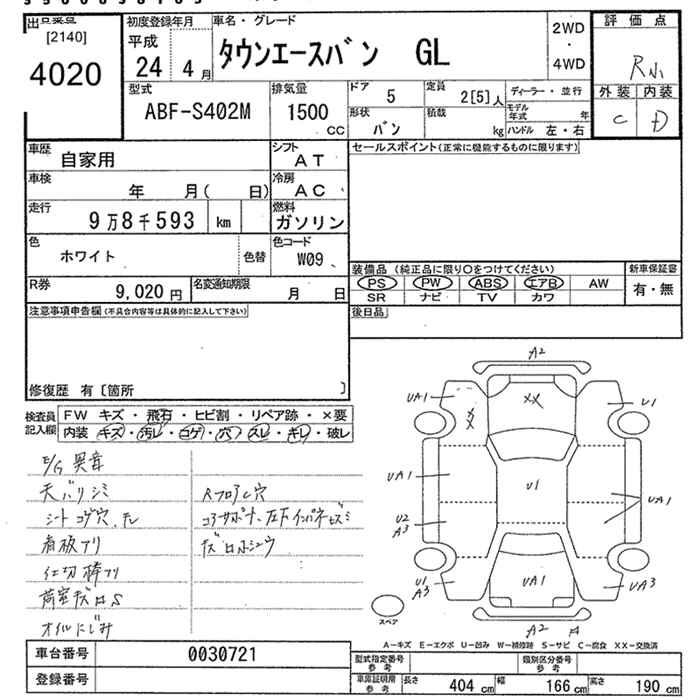 [2140]
4020
初度登録年月
平成
24 4 月
車名・グレード
タウンエースバン GL
2WD
・
4WD
評価点
R小
外装 内装
C D
型式
ABF-S402M
排気量
1500
CC
ドア 5
定員 2[5]人
ディーラー・並行
形状 バン
積載 kg
モデル年式 年
ハンドル 左・右
車歴 自家用
シフト AT
セールスポイント(正常に機能するものに限ります)
車検 年 月( 日)
冷房 AC
走行 9万8千593 km
燃料 ガソリン
色 ホワイト
色替
色コード W09
装備品 (純正品に限り○をつけてください)
新車保証書
PS PW ABS エアB AW
有・無
SR ナビ TV カワ
R券 9,020 円
名変通知期限 月 日
後日品
注意事項申告欄(不具合内容等は具体的に記入して下さい)
修復歴 有〔箇所 〕
検査員記入欄
FW キズ・飛石・ヒビ割・リペア跡・×要
内装 キズ・汚レ・コゲ・穴・スレ・キレ・破レ
E/G 異音
天バリシミ
シートコゲ穴、スレ
看板アリ
仕切棒アリ
荷室キズ
オイルにじみ
RフロアC穴
コアサポート、左下インパネビズミ
A2
UA1
XX
XX
U1
UA1
U1
UA1
U2
A3
U1
A3
UA1
UA3
A2
スペア
A-キズ E-エクボ U-凹み W-補修跡 S-サビ C-腐食 XX-交換済
車台番号 0030721
登録番号
型式指定番号 参考
類別区分番号 参考
車庫証明用 参考
長さ 404 cm
幅 166 cm
高さ 190 cm